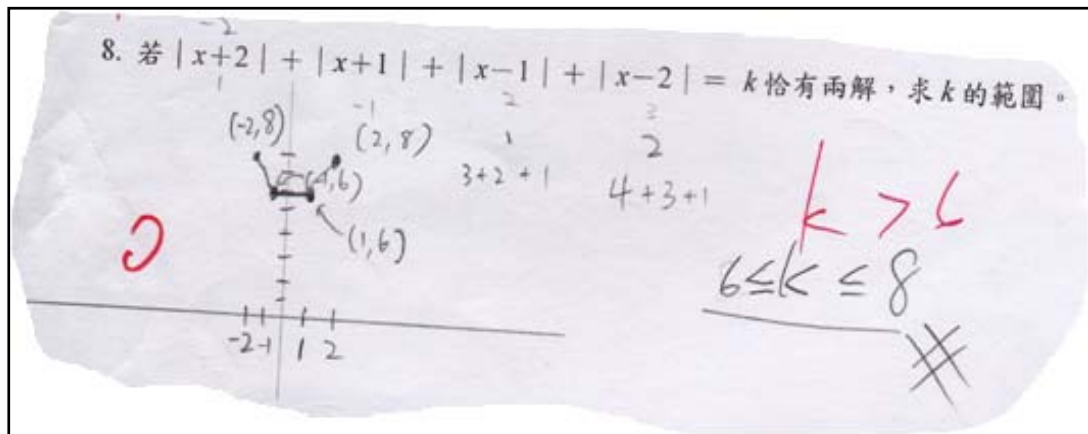 -2
8. 若 | x+2 | + | x+1 | + | x-1 | + | x-2 | = k 恰有兩解，求 k 的範圍。
1 -1 2 3
(-2,8) (2,8) 1 2
(-1,6) 3+2+1 4+3+1
(1,6)
k > 6
6≤k≤8
-2 -1 1 2